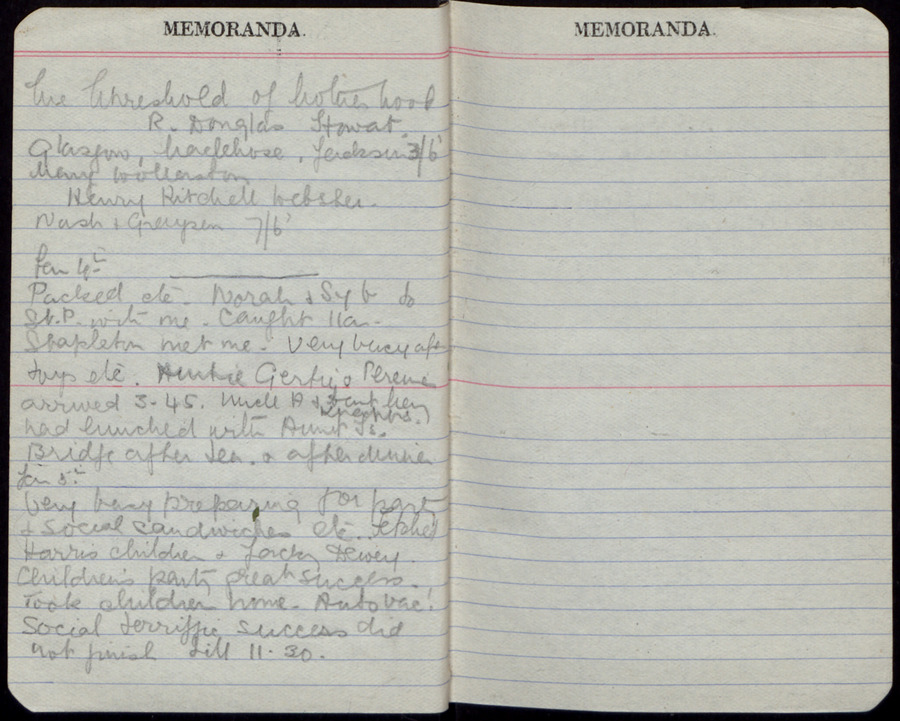 MEMORANDA.
The Threshold of Motherhood
R. Douglas Howat.
Glasgow, Maclehose, Jackson 3/6
Mary Wollerston
Henry Kitchell Webster.
Nash & Grayson 7/6
Jan 4th
Packed etc. Norah & Syb to
St. P. with me. Caught 11a.
Stapleton met me. Very busy aft
toys etc. Auntie Gerty &
arrived 3-45. Uncle A &
had lunched with Aunt Is.
Bridge after tea. & after dinner
Jan 5th
Very busy preparing for party
& social sandwiches etc. fetched
Harris children & Jacky Dewey.
Children's party great success.
Took children home. Autovac!
Social terriffic success did
not finish till 11-30.
MEMORANDA.